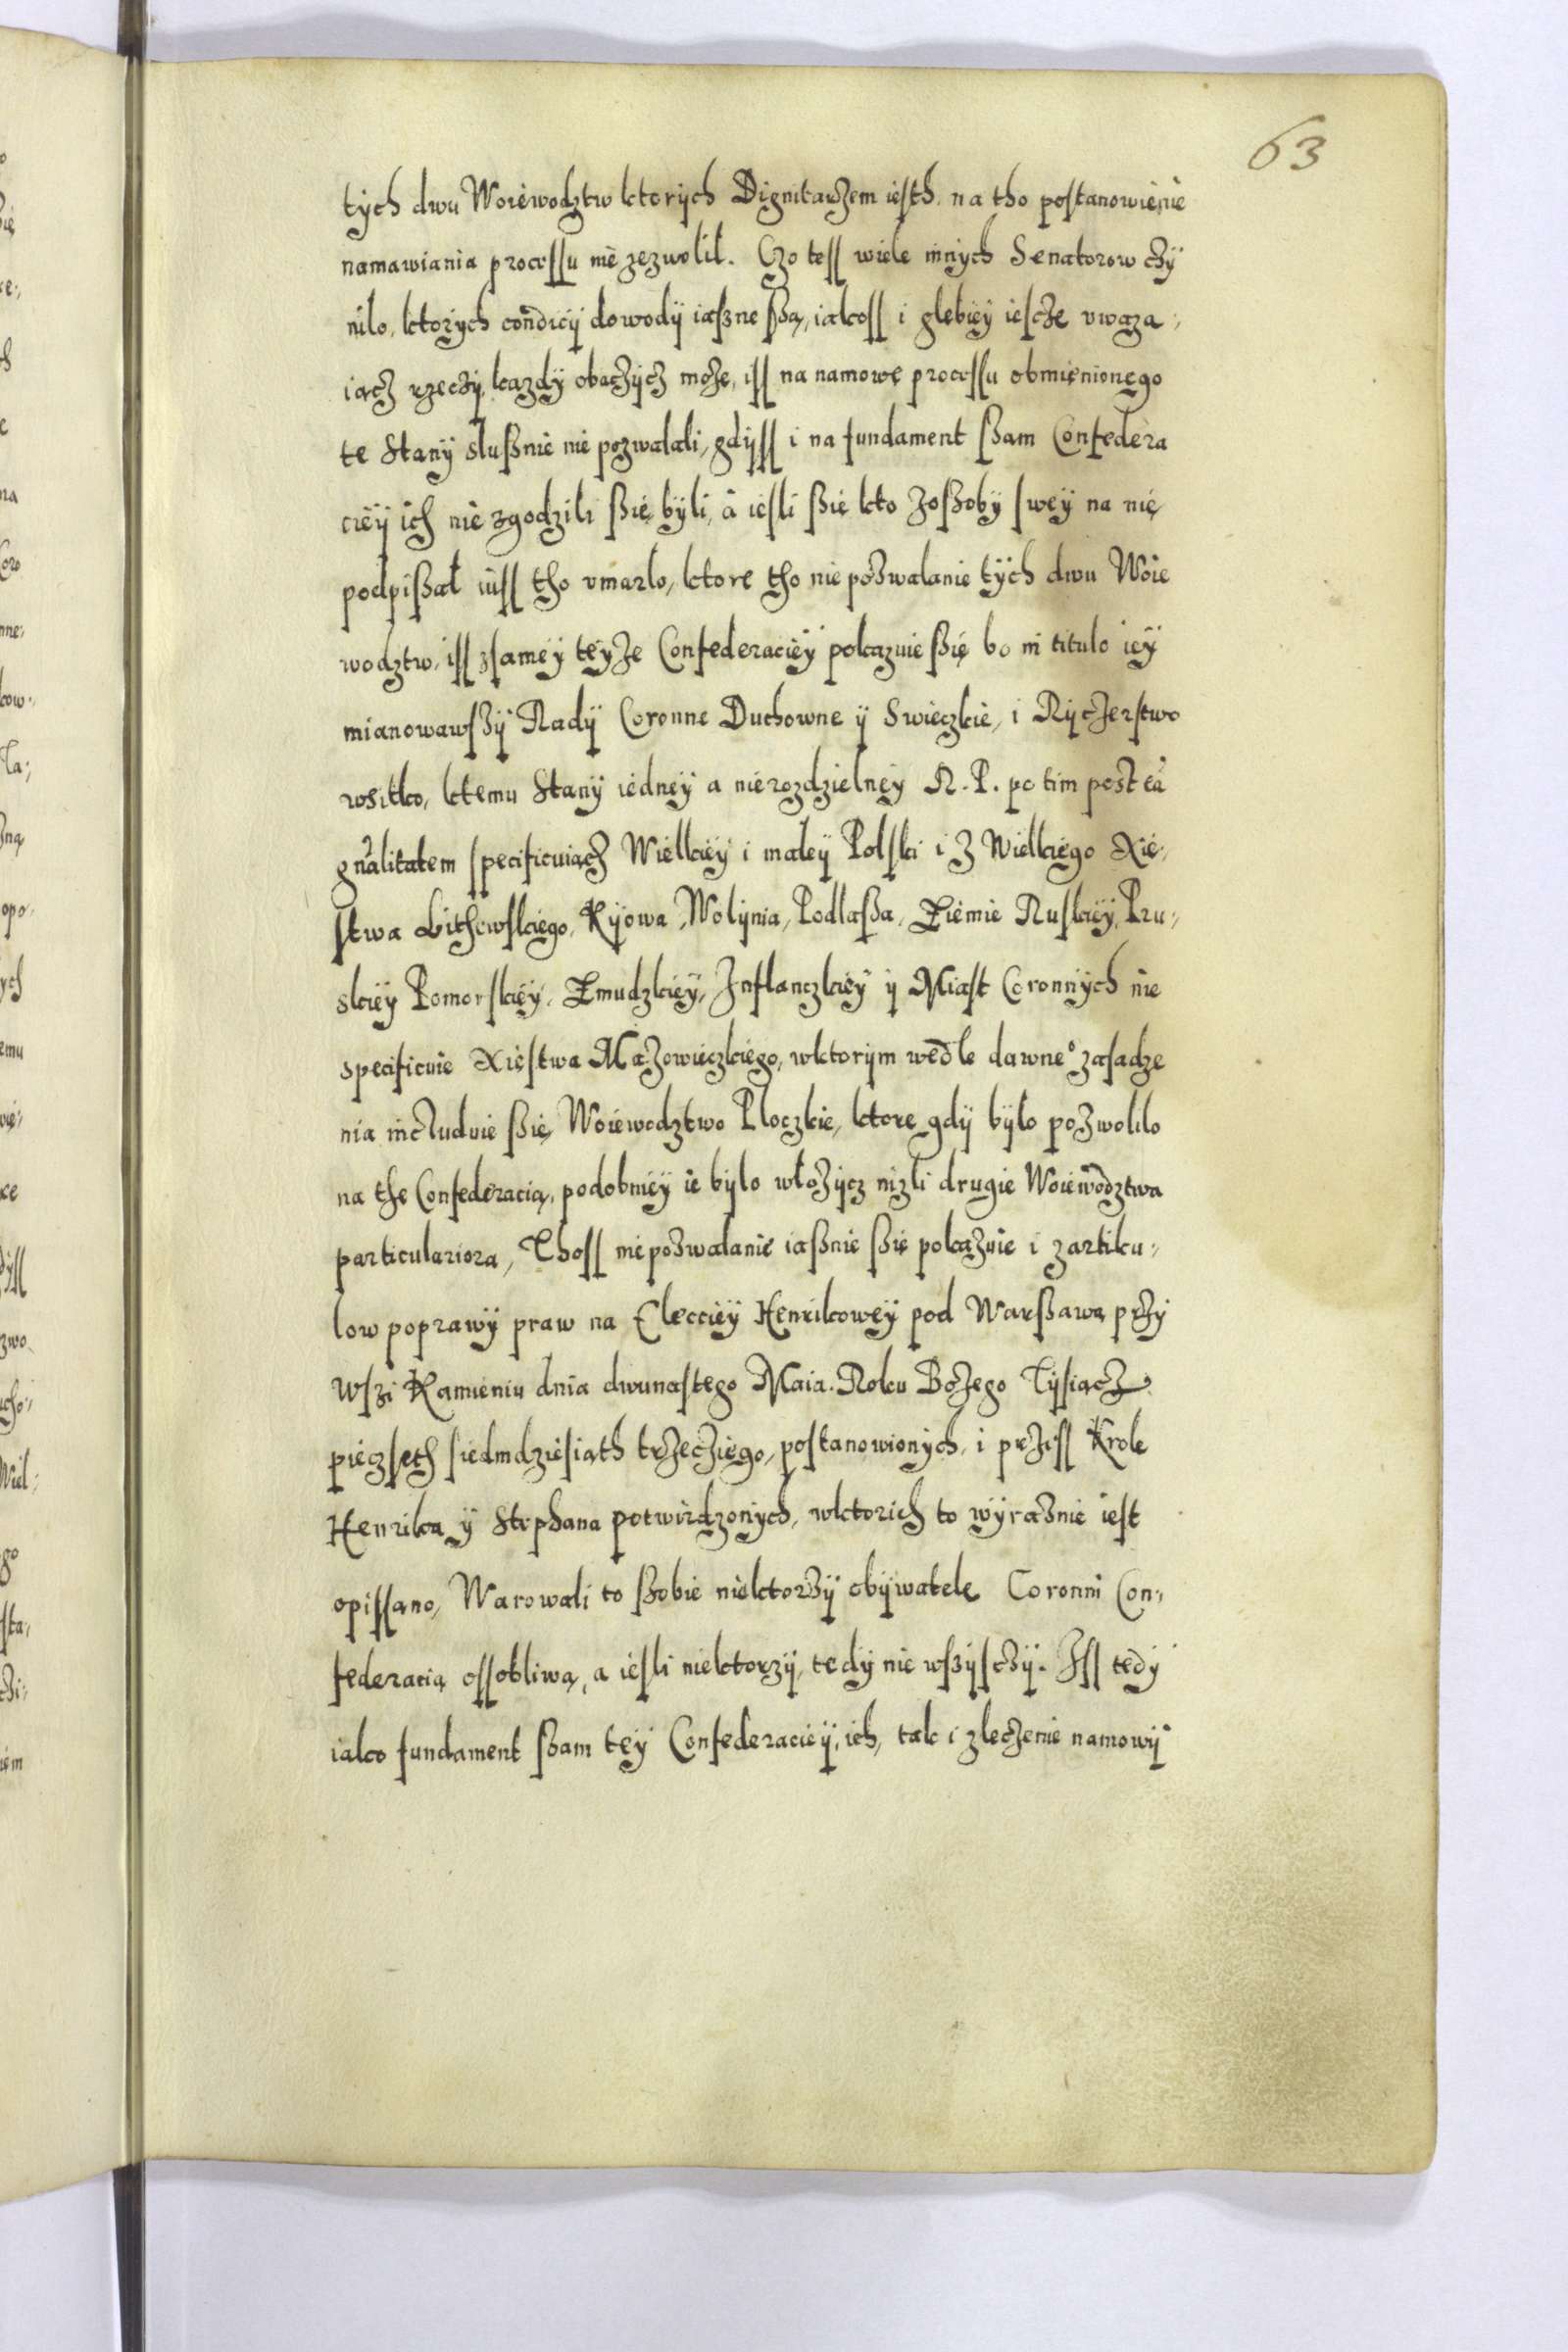 63
tych dwu Woiewodztw ktorych Dignitarzem iesth na tho postanowienie
namawiania processu nie zezwolil. Czo tess wiele innych Senatorow czÿ
nilo, ktorych contradicÿ dowodÿ iaszne ßą, iakoss i glebieÿ iescze vwaza,
iącz rzeczÿ, kazdÿ obaczÿcz moze, iss na namowę processu obmięnionego
te Stanÿ slußnie nie pozwalali, gdÿss i na fundament ßam Confedera
cieÿ ich nie zgodzili ßię bÿli, à iesli ßię kto zoßobÿ sweÿ na nię
podpißał iuss tho vmarlo, ktore tho niepozwalanie tÿch dwu Woie
wodztw, iss zsameÿ teÿze Confederacieÿ pokazuie ßię bo in titulo ieÿ
mianowawszÿ Radÿ Coronne Duchowne ÿ Swieczkie, i Rÿczerstwo
wsitko, ktemu Stanÿ iedneÿ a nierozdzielneÿ R. P. po tim post eã
gn̄alitatem specificuiącz Wielkieÿ i małeÿ Polski i z Wielkiego Xię,
stwa Lithewskiego, Kÿowa, Wolÿnia, Podlaßa, Ziemie Ruskieÿ, Pru,
skieÿ Pomorskieÿ, Zmudzkieÿ, Inflanczkieÿ ÿ Miast Coronnÿch nie
specificuie Xięstwa Mazowieczkiego, wktorÿm wedle dawneº zasadze
nia includuie ßię Woiewodztwo Ploczkie, ktore gdÿ bÿło pozwolilo
na the Confederacią, podobnieÿ ie bÿlo włożÿcz nizli drugie Woiewodztwa
particulariora, Thoss niepozwalanie iaßnie ßię pokazuie i zartiku,
low poprawÿ praw na Elecciëÿ Henrikoweÿ pod Warßawą przÿ
Wszi Kamieniu dnia dwunastego Maia. Roku Bozego Tÿsiącz
pięczseth siedmdziesiąth trzecziego, postanowionÿch, i przess Krole
Henrika ÿ Stephana potwirdzonÿch, wktorich to wÿraznie iest
opissano, Warowali to ßobie niektorzÿ obÿwatele Coronni Con,
federacią ossobliwą, a iesli niektorzÿ, tedÿ nie wszÿsczÿ. Iss tedÿ
iako fundament ßam teÿ Confederacieÿ, ich, tak i zleczenie namowÿ